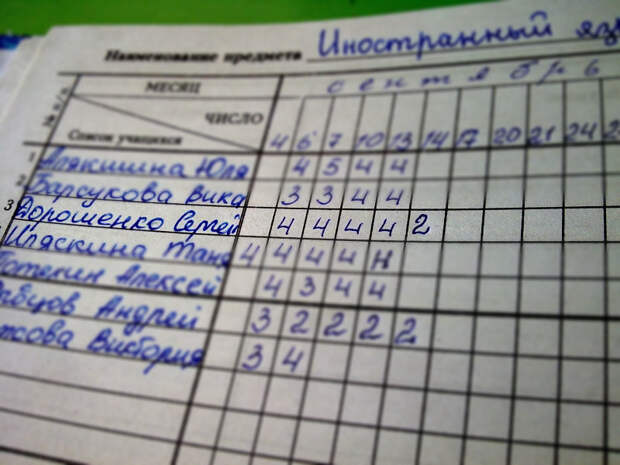 Наименование предмета Иностранный яз
№ п/п МЕСЯЦ сентябрь
ЧИСЛО
Список учащихся 4 6 7 10 13 14 17 20 21 24 2
1 Алякишина Юля 4 5 4 4
2 Барсукова Вика 3 3 4 4
3 Дорошенко Сергей 4 4 4 4 2
Иляскина Таня 4 4 4 4 н
Потехин Алексей 4 3 4 4
Андрей 3 2 2 2 2
Виктория 3 4